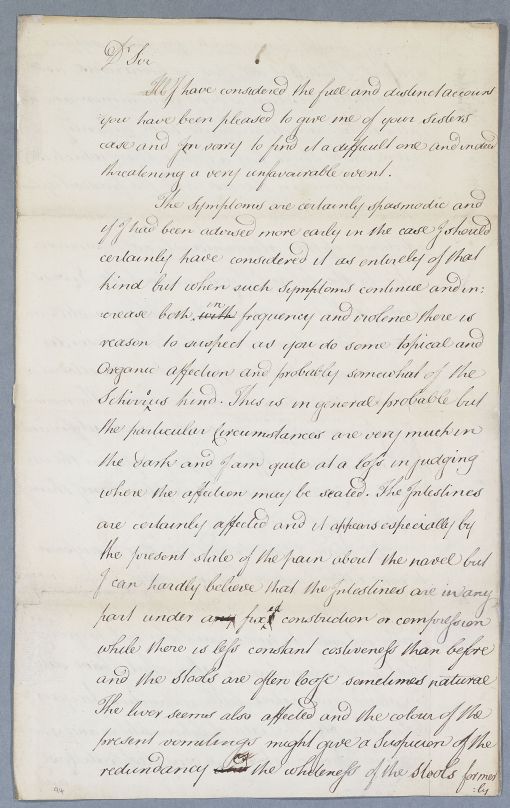 Dr Sir
I have considered the full and distinct account
you have been pleased to give me of your Sisters
case and I'm sorry to find it a difficult one and indeed
threatening a very unfavourable event.
The Symptoms are certainly spasmodic and
if I had been advised more early in the case I should
certainly have considered it as entirely of that
kind but when such Symptoms continue and in:
crease both with in frequency and violence there is
reason to suspect as you do some topical and
Organic affection and probably somewhat of the
Schirrous kind. This is in general probable but
the particular Circumstances are very much in
the dark and I am quite at a loss in judging
where the affection may be seated. The Intestines
are certainly affected and it appears especially by
the present state of the pain about the navel but
I can hardly believe that the Intestines are in any
part under any fixed constriction or compression
while there is less constant costiveness than before
and the stools are often loose sometimes natural
The liver seems also affected and the colour of the
present vomitings might give a Suspicion of the
redundancy of the whiteness of the stools former
:ly
94